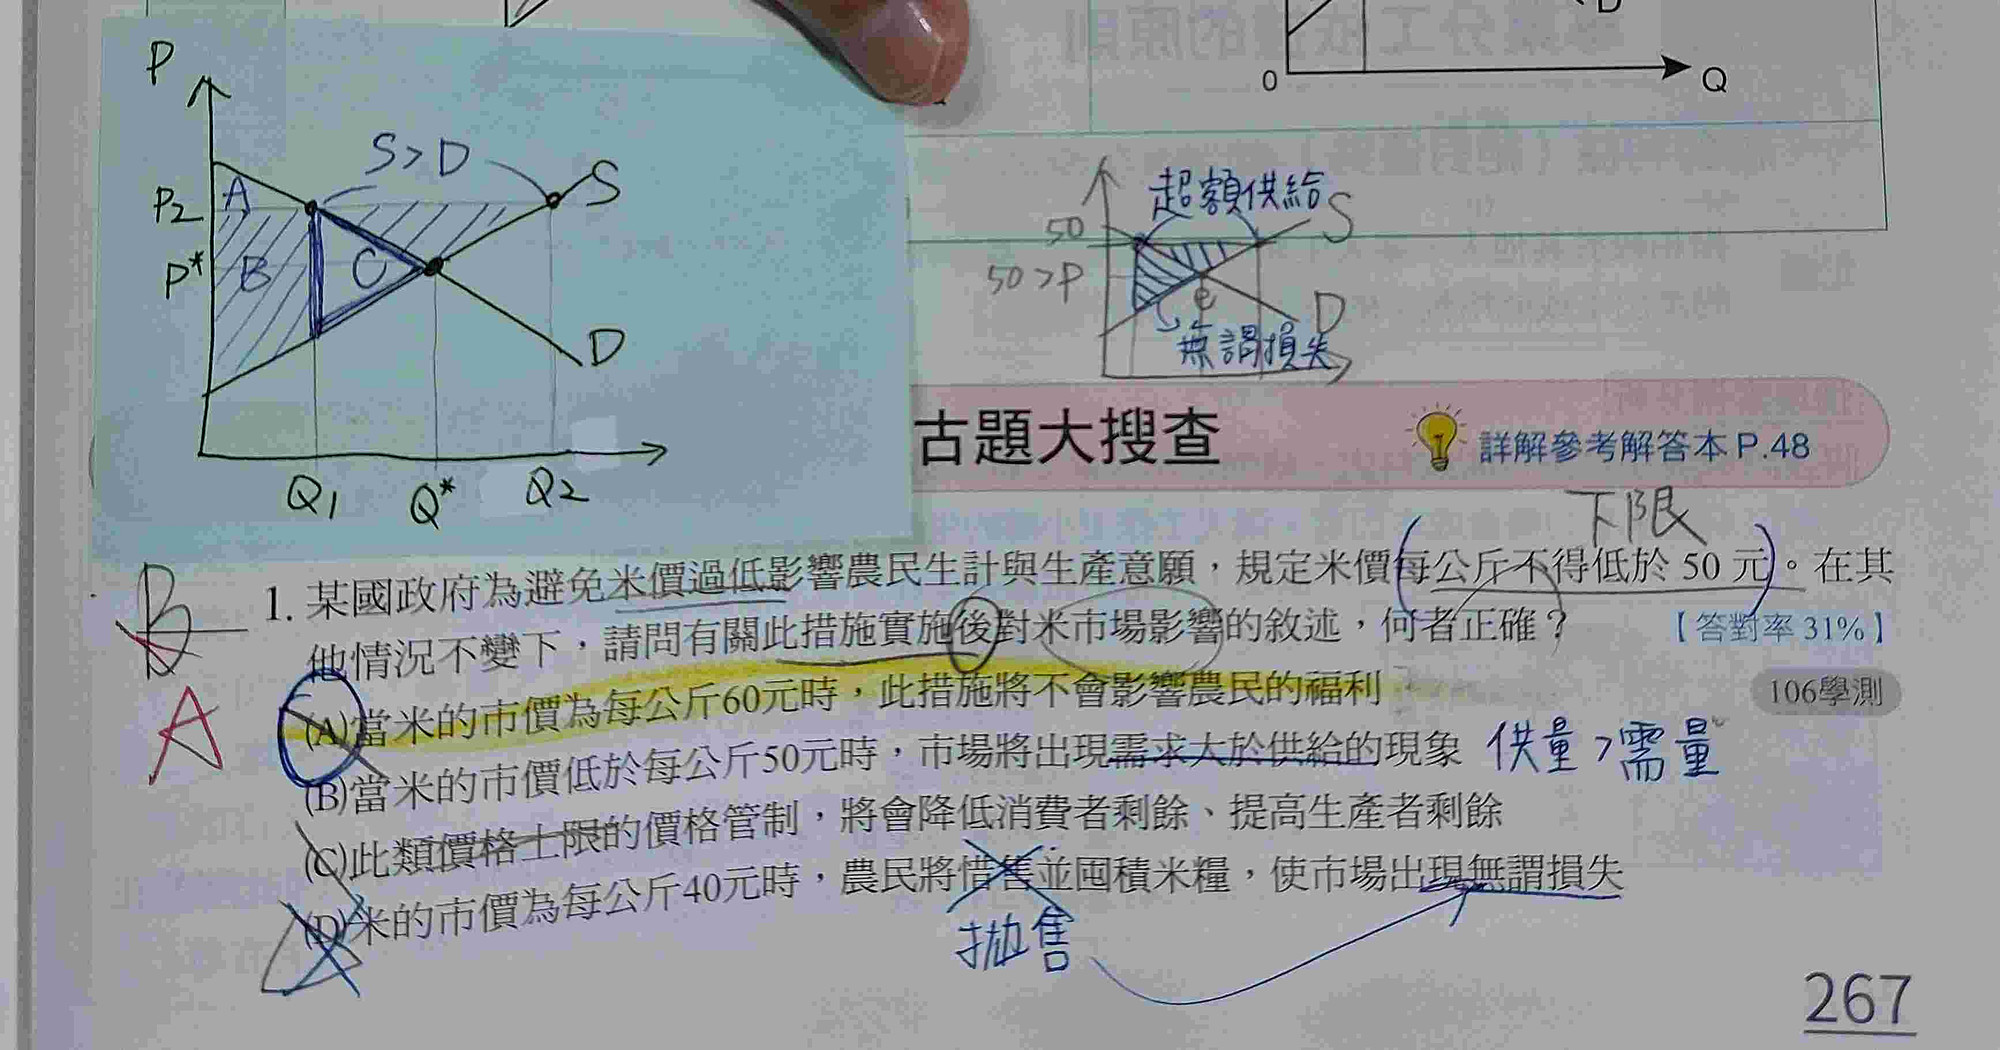 D
0
Q
P
S>D
S
A
P2
P*
B
C
D
Q1
Q*
Q2
超額供給
50
S
50>P
e
D
無謂損失
古題大搜查
詳解參考解答本 P.48
下限
B
1. 某國政府為避免米價過低影響農民生計與生產意願，規定米價每公斤不得低於 50 元。在其
他情況不變下，請問有關此措施實施後對米市場影響的敘述，何者正確？
【答對率 31%】
A
(A)當米的市價為每公斤60元時，此措施將不會影響農民的福利
106學測
(B)當米的市價低於每公斤50元時，市場將出現需求大於供給的現象
供量>需量
(C)此類價格上限的價格管制，將會降低消費者剩餘、提高生產者剩餘
(D)米的市價為每公斤40元時，農民將惜售並囤積米糧，使市場出現無謂損失
拋售
267